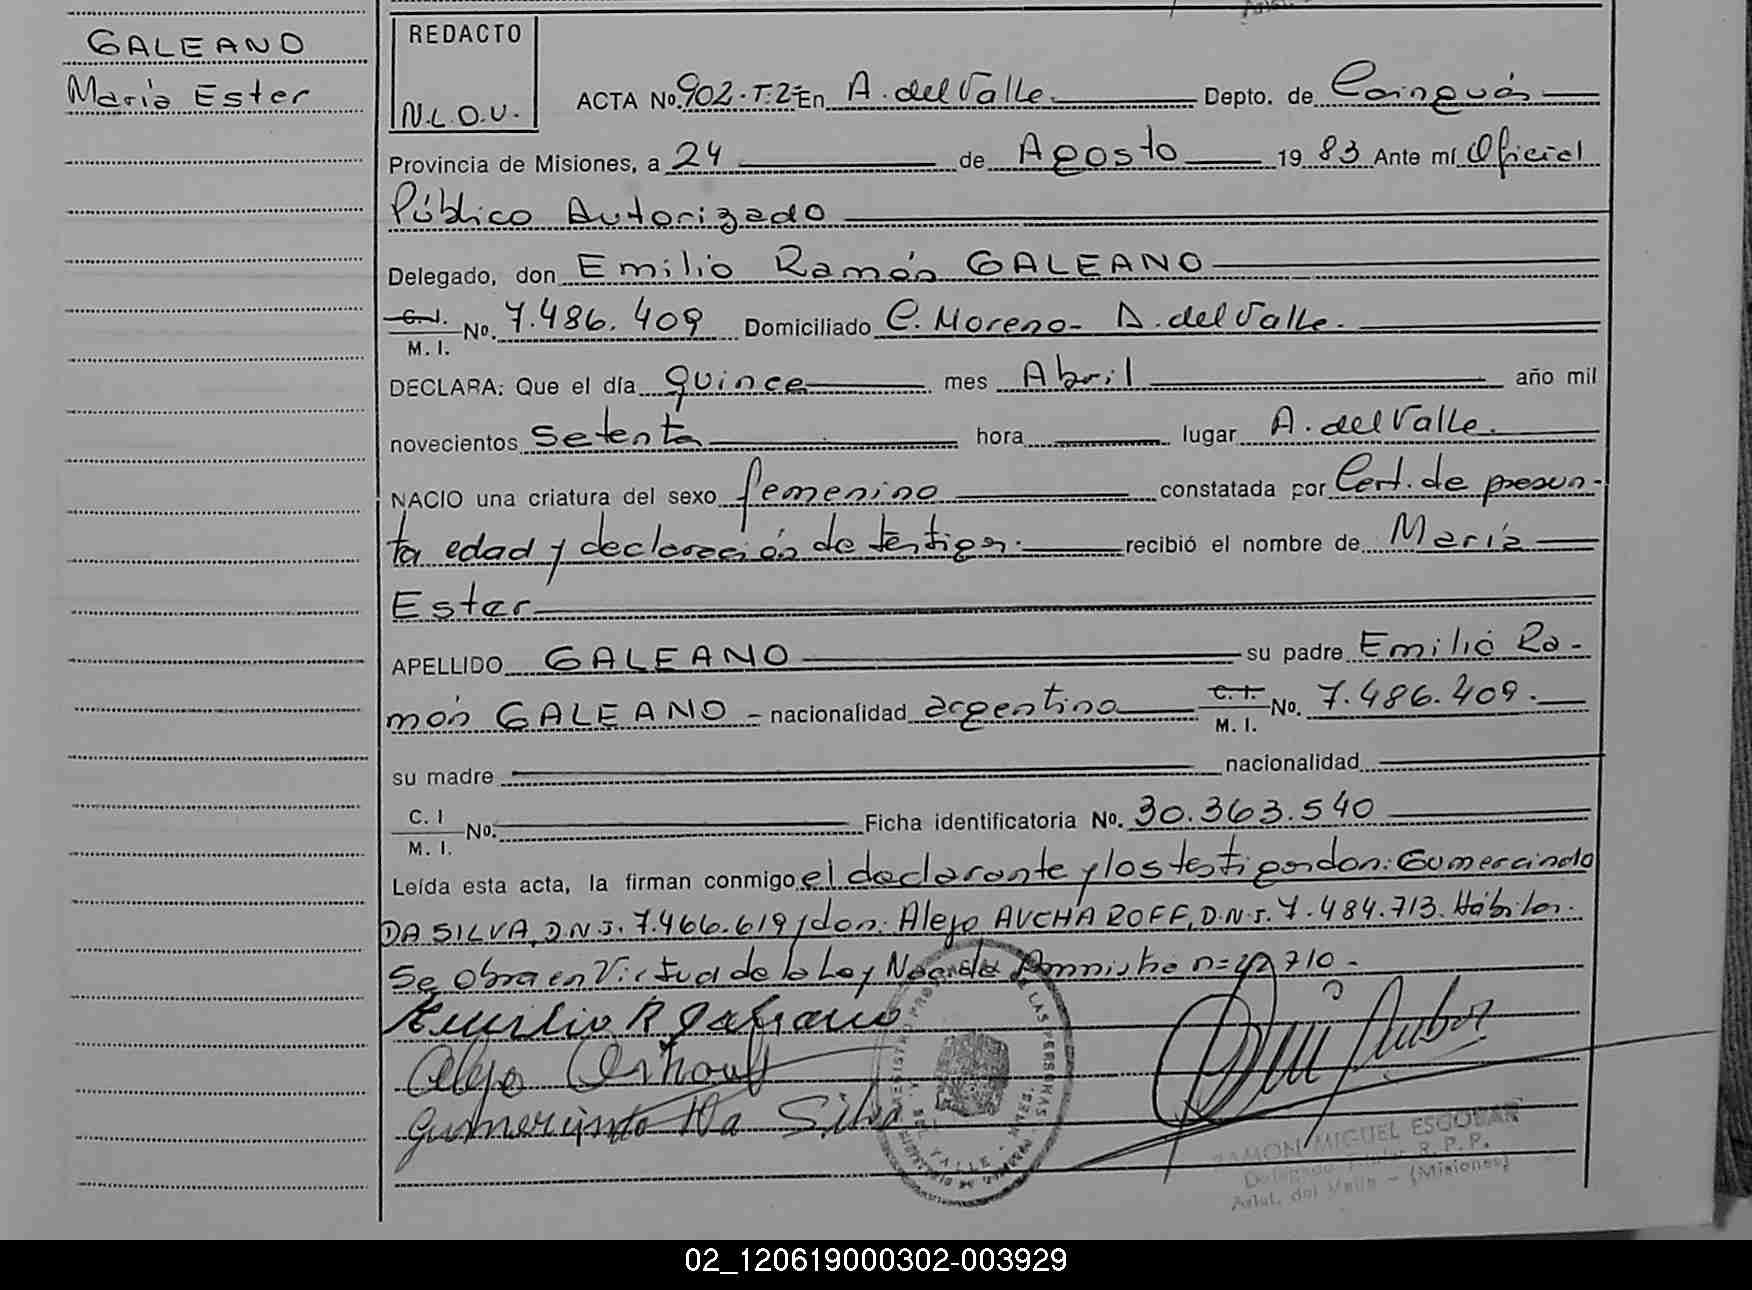 GALEANO
María Ester
REDACTO
N.L.O.V.
ACTA No. 902.T.2º En A. del Valle. Depto. de Cainguás
Provincia de Misiones, a 24 de Agosto 1983 Ante mí Oficial
Público Autorizado
Delegado, don Emilio Ramón GALEANO
C.I. M.I. No. 7.486.409 Domiciliado C. Moreno- A. del Valle.
DECLARA: Que el día quince mes Abril año mil
novecientos setenta hora lugar A. del Valle.
NACIO una criatura del sexo femenino constatada por Cert. de presun-
ta edad y declaración de testigos. recibió el nombre de María
Ester
APELLIDO GALEANO su padre Emilio Ra-
món GALEANO - nacionalidad argentino C.I. M.I. No. 7.486.409.
su madre nacionalidad
C.I M.I. No. Ficha identificatoria No. 30.363.540
Leída esta acta, la firman conmigo el declarante y los testigos don: Gumercindo
DA SILVA, D.N.I. 7.466.619 y don: Alejo AUCHAROFF, D.N.I. 7.484.713. Hábiles.
Se obra en Virtud de la Ley Nac. de Amnistia nº 22710.-
Emilio R Galeano
Alejo
Gumercindo Da Silva
LAS PERSONAS
VALLE
RAMON MIGUEL ESCOBAR
Delegado Titular R.P.P.
Arist. del Valle - (Misiones)
02_120619000302-003929